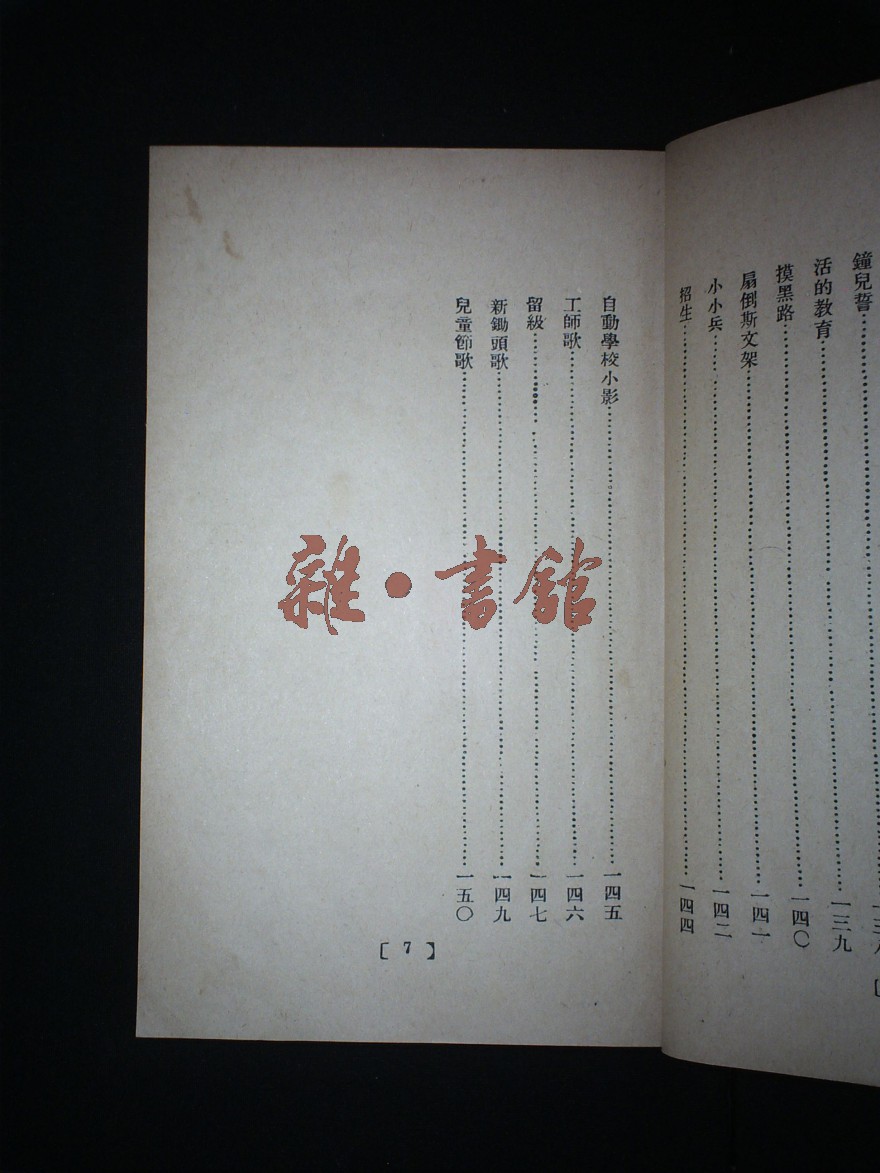 鐘兒誓……一三八
活的教育……一三九
摸黑路……一四〇
扇倒斯文架……一四一
小小兵……一四二
招生……一四四
自動學校小影……一四五
工師歌……一四六
留級……一四七
新鋤頭歌……一四九
兒童節歌……一五〇
[7]
雜·書館